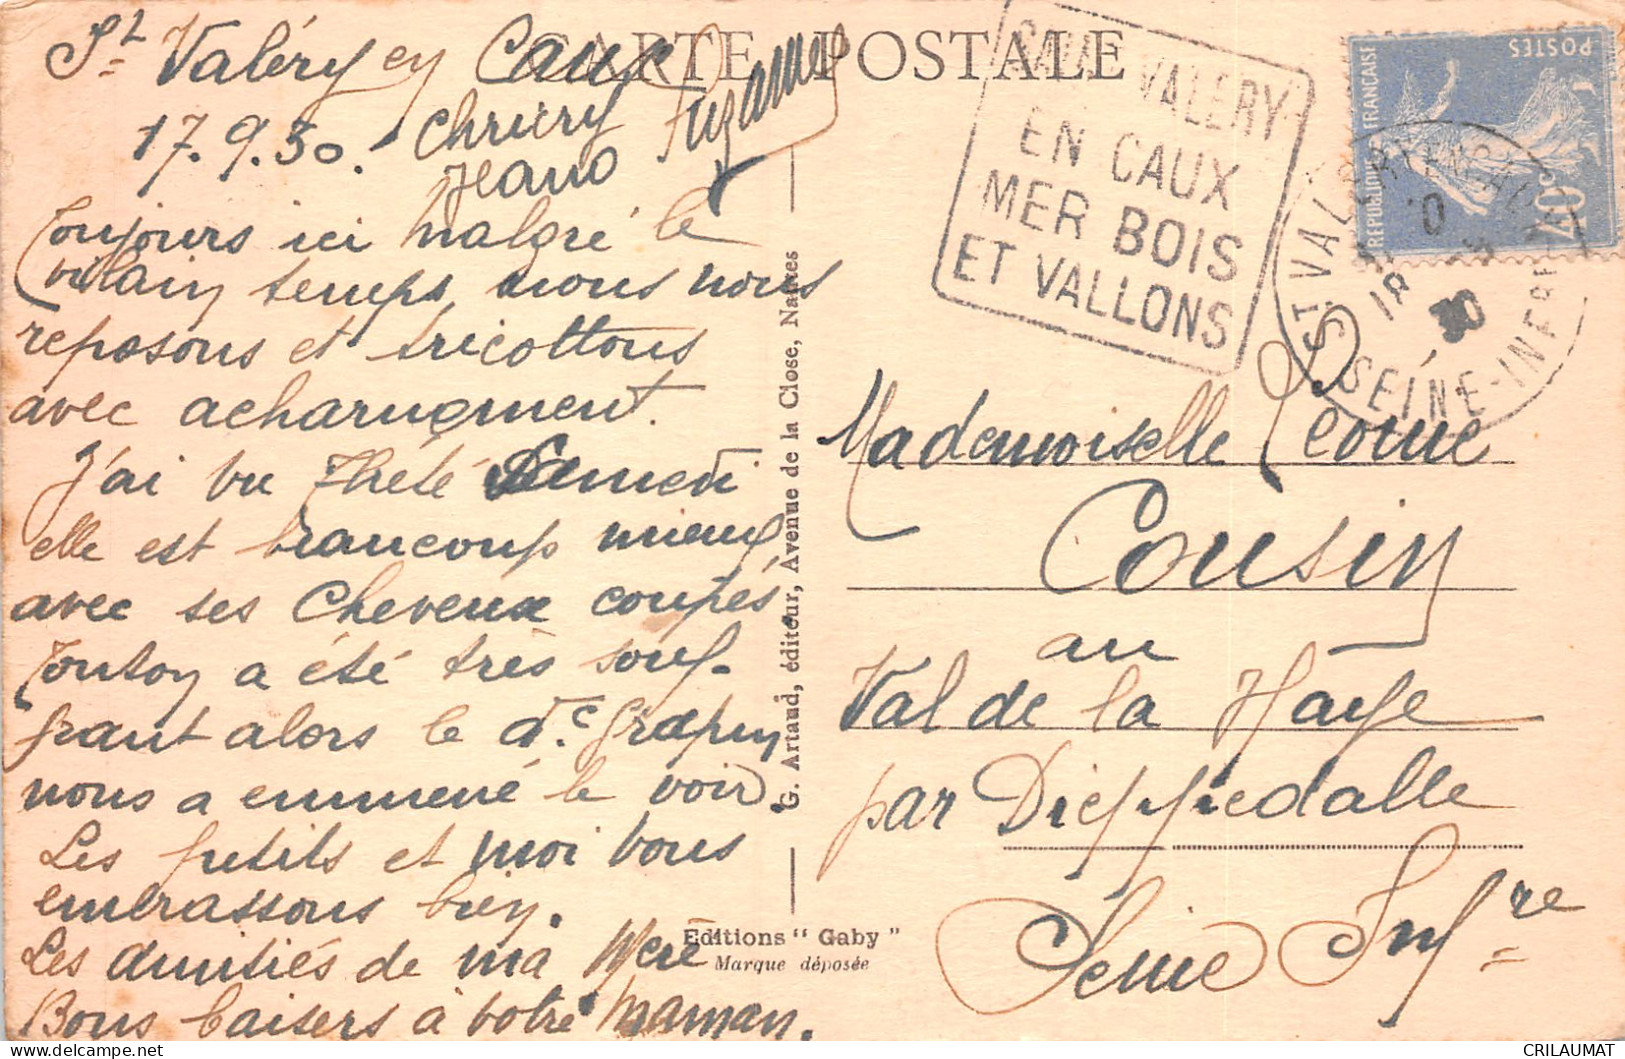 CARTE POSTALE
St Valéry en Caux
17.9.30.
Toujours ici malgré le
vilain temps, nous nous
reposons et tricottons
avec acharnement.
J'ai vu Thété Samedi
elle est beaucoup mieux
avec ses cheveux coupés
Tonton a été très souf-
frant alors le
nous a emmené le voir.
Les petits et moi vous
embrassons bien.
Les amitiés de ma Mère
Bons baisers à votre maman.
Suzanne
G. Artaud, éditeur, Avenue de la Close, Nantes
Editions "Gaby"
Marque déposée
VALERY
EN CAUX
MER BOIS
ET VALLONS
POSTES
REPUBLIQUE FRANÇAISE
40c
ST VALERY EN CAUX
18
30
SEINE-INFRE
Mademoiselle Leone
Cousin
au
Val de la Haye
par Dieppedalle
Seine Infre
CRILAUMAT